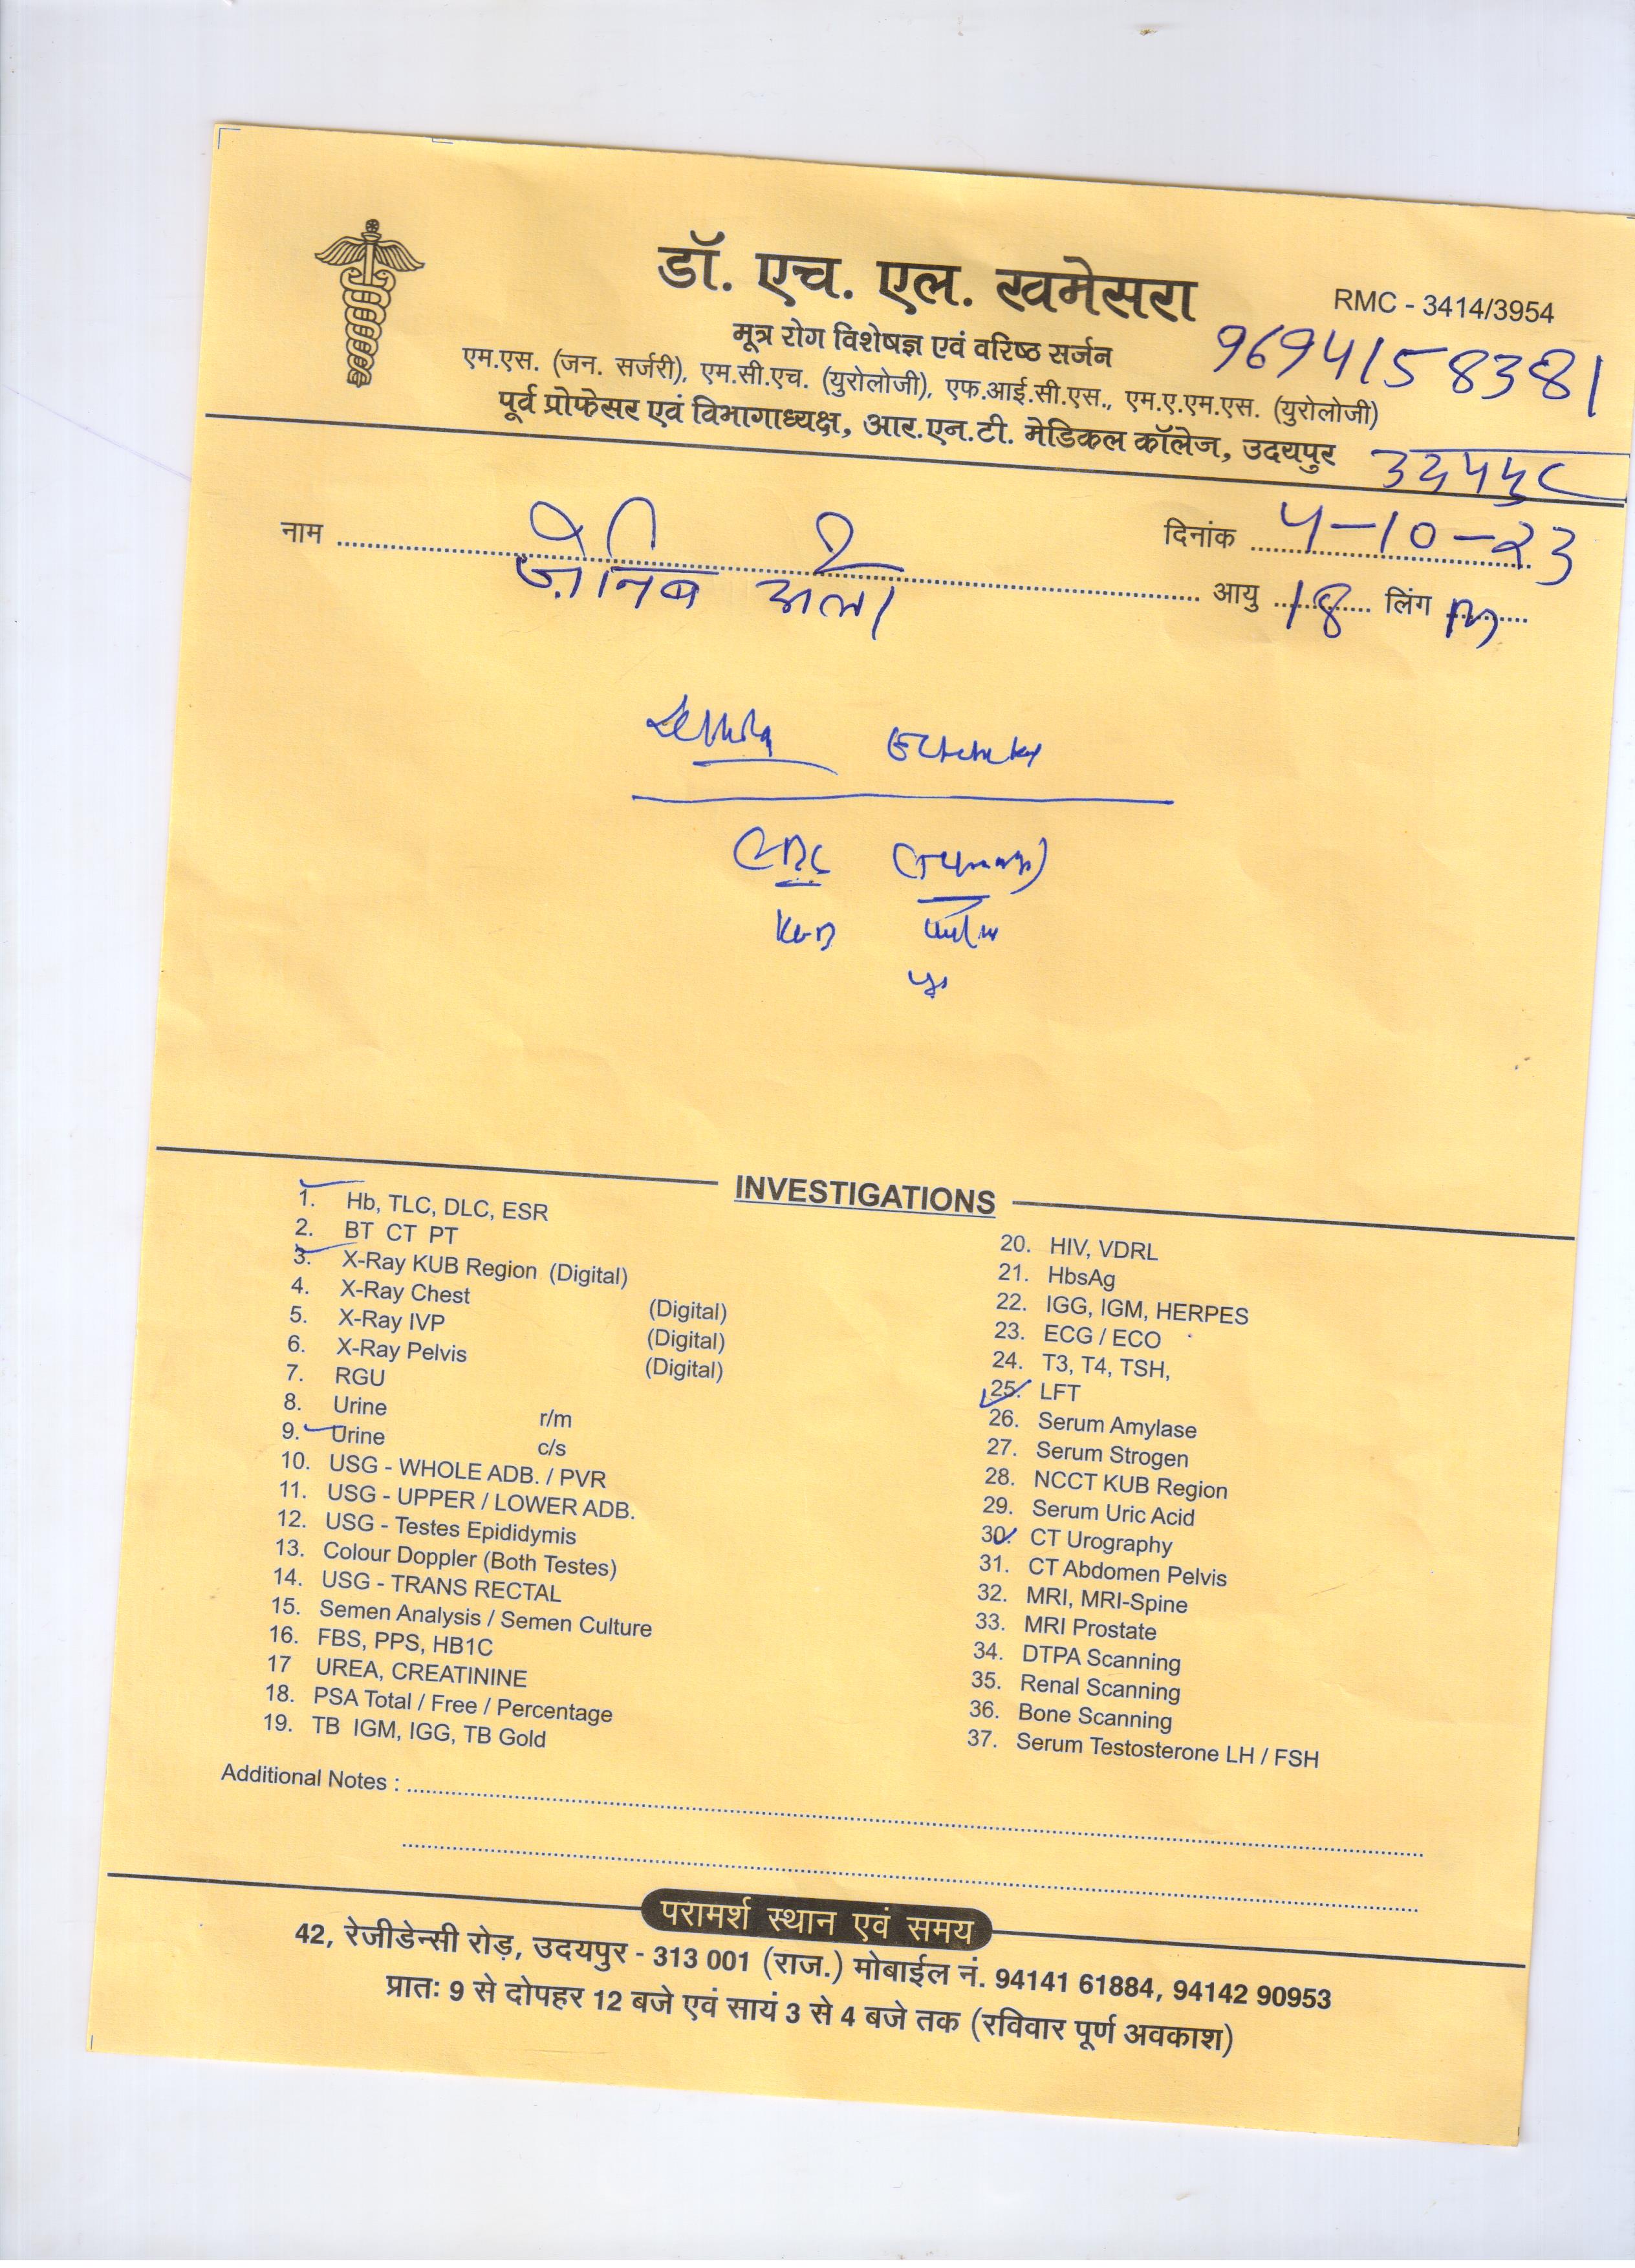 डॉ. एच. एल. खमेसरा
RMC - 3414/3954
मूत्र रोग विशेषज्ञ एवं वरिष्ठ सर्जन
9694158381
एम.एस. (जन. सर्जरी), एम.सी.एच. (युरोलोजी), एफ.आई.सी.एस., एम.ए.एम.एस. (युरोलोजी)
पूर्व प्रोफेसर एवं विभागाध्यक्ष, आर.एन.टी. मेडिकल कॉलेज, उदयपुर
उदयपुर
नाम
दिनांक 4-10-23
आयु 18 लिंग m
INVESTIGATIONS
1. Hb, TLC, DLC, ESR
2. BT CT PT
3. X-Ray KUB Region (Digital)
4. X-Ray Chest (Digital)
5. X-Ray IVP (Digital)
6. X-Ray Pelvis (Digital)
7. RGU
8. Urine r/m
9. Urine c/s
10. USG - WHOLE ADB. / PVR
11. USG - UPPER / LOWER ADB.
12. USG - Testes Epididymis
13. Colour Doppler (Both Testes)
14. USG - TRANS RECTAL
15. Semen Analysis / Semen Culture
16. FBS, PPS, HB1C
17 UREA, CREATININE
18. PSA Total / Free / Percentage
19. TB IGM, IGG, TB Gold
20. HIV, VDRL
21. HbsAg
22. IGG, IGM, HERPES
23. ECG / ECO
24. T3, T4, TSH,
25. LFT
26. Serum Amylase
27. Serum Strogen
28. NCCT KUB Region
29. Serum Uric Acid
30. CT Urography
31. CT Abdomen Pelvis
32. MRI, MRI-Spine
33. MRI Prostate
34. DTPA Scanning
35. Renal Scanning
36. Bone Scanning
37. Serum Testosterone LH / FSH
Additional Notes :
परामर्श स्थान एवं समय
42, रेजीडेन्सी रोड़, उदयपुर - 313 001 (राज.) मोबाईल नं. 94141 61884, 94142 90953
प्रातः 9 से दोपहर 12 बजे एवं सायं 3 से 4 बजे तक (रविवार पूर्ण अवकाश)